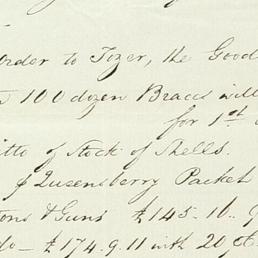 Order to Tozer, the Good
100 dozen Braces will
for 1st
itto of Stock of Shells.
p Queensberry Packet
tons & Guns £145.16.
do — £174.9.11 with 20